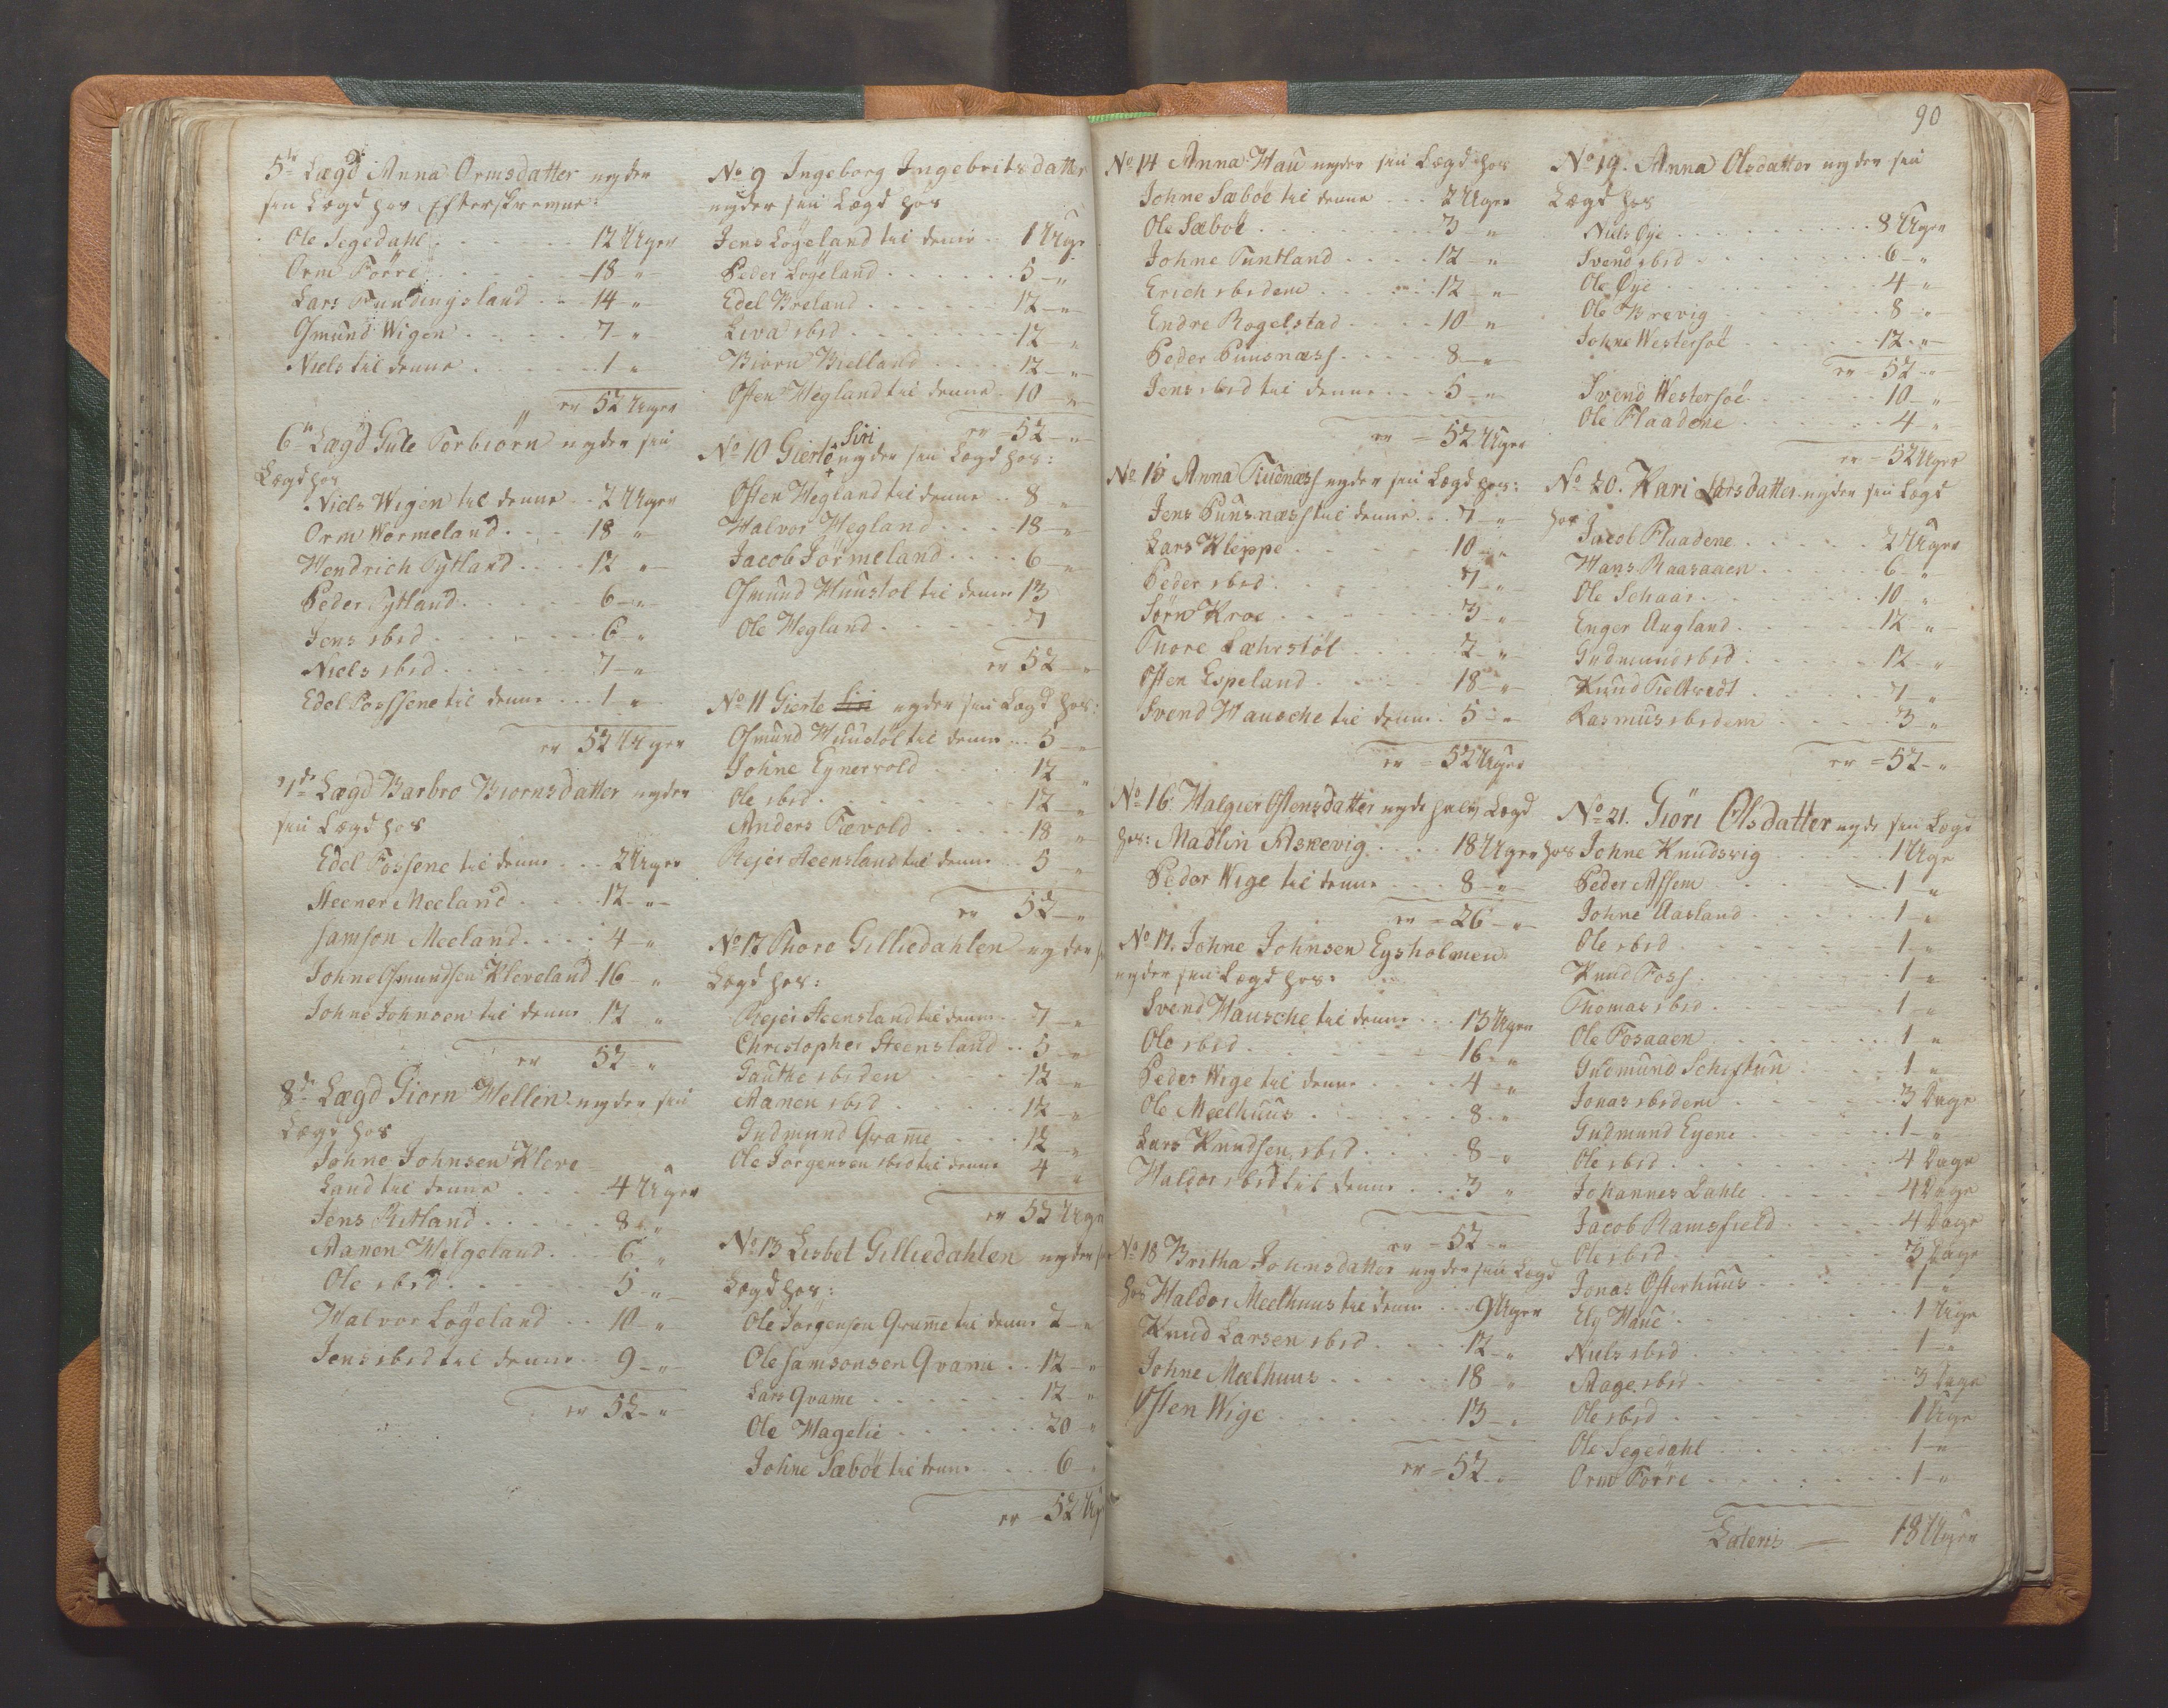 5te Lægd Anna Ormsdatter nyder
sin Lægd hos Efterskrevne:
Ole Segedahl . . . . . 12 Uger
Orm Förre . . . . . 18 "
Lars Tundingsland . . 14 "
Osmund Wigen . . . . 7 "
Niels til denne . . . . 1 "
er 52 Uger
6te Lægd Gule Torbiörn nyder sin
Lægd hos
Niels Wigen til denne . . 2 Uger
Orm Wormeland . . . 18 "
Hendrich Tytland . . . 12 "
Peder Tytland . . . . 6 "
Jens ibid . . . . . 6 "
Niels ibid . . . . . 7 "
Edel Fossene til denne . . . 1 "
er 52 Uger
7de Lægd Barbro Biornsdatter nyder
sin Lægd hos
Edel Fossene til denne . . . 2 Uger
Steener Meeland . . . . 12 "
Samson Meeland . . . . 4 "
Johne Osmundsen Kleveland 16 "
Johne Johnsen til denne 12 "
er 52 "
8de Lægd Giorn Hellen nyder sin
Lægd hos
Johne Johnsen Kleve
land til denne . . . . 4 Uger
Jens Ritland . . . . . 8 "
Aanen Helgeland . . . 6 "
Ole ibid . . . . . . 5 "
Halvor Løyeland . . 10 "
Jens ibid til denne . . 9 "
er 52 "
No 9 Ingeborg Ingebritsdatter
nyder sin Lægd hos
Jens Løyeland til denne . . 1 Uge
Peder Løyeland . . . . . 5 "
Edel Breland . . . . . 12 "
Liva ibid . . . . . . 12 "
Biørn Bielland . . . . 12 "
Østen Hegland til denne . 10 "
er 52 "
No 10 Gierte Siri nyder sin Lægd hos:
Østen Hegland til denne . . 8 "
Halvor Hegland . . . . 18 "
Jacob Sørmeland . . . . 6 "
Osmund Huustøl til denne 13
Ole Hegland . . . . . . 7
er 52 "
No 11 Gierte Siri nyder sin Lægd hos:
Osmund Huustøl til denne . . . 5 "
Johne Eynervold . . . . 12 "
Ole ibid . . . . . . . 12 "
Anders Tævold . . . . . 18 "
Reier Steensland til denne . . 5 "
er 52 "
No 12 Thore Gilliedahlen nyder
Lægd hos:
Reier Steensland til denne . . 7 "
Christopher Steensland . . 5 "
Gauthe ibiden . . . . 12 "
Aanen ibid . . . . . 12 "
Gudmund Qvame . . . . 12 "
Ole Jørgensen ibid til denne 4 "
er 52 Uger
No 13 Lisbet Gilliedahlen nyder
Lægd hos:
Ole Jørgensen Qvame til denne 2 "
Ole Samsonsen Qvame . . 12 "
Lars Qvame . . . . . . 12 "
Ole Hagelie . . . . . . 20 "
Johne Sæböe til denne . . . 6
er 52 Ug
90
No 14 Anna Hau nyder sin Lægd hos
Johne Sæböe til denne . . . 2 Uger
Ole Sæböe . . . . . . . 3 "
Johne Tuntland . . . . 12 "
Erich ibidem . . . . . 12 "
Endre Rogelstad . . . . 10 "
Peder Puusnæss . . . . 8 "
Jens ibid til denne . . . 5 "
er = 52 Uger
No 15 Anna Tiudnæss nyder sin Lægd hos:
Jens Puusnæss til denne . . . 7 "
Lars Kleppe . . . . . . 10 "
Peder ibid . . . . . . 7 "
Sørn Kroe . . . . . . 3 "
Thore Læhrstøl . . . . 2 "
Østen Espeland . . . . 18 "
Svend Hausche til denne . 5 "
er = 52 Uger
No 16 Halgier Østensdatter nyde halv Lægd
hos: Madlin Askevig . . . . 18 Uger
Peder Wige til denne . . . . 8 "
er = 26 "
No 17. Johne Johnsen Eysholmen
nyder sin Lægd hos:
Svend Hausche til denne . . . 13 Uger
Ole ibid . . . . . . . 16 "
Peder Wige til denne . . . . 4 "
Ole Meelhuus . . . . . . 8 "
Lars Knudsen ibid . . . . 8 "
Haldor ibid til denne . . . 3 "
er = 52 "
No 18 Britha Johnsdatter nyder sin Lægd
hos Haldor Meelhuus til denne . . . 9 Uger
Knud Larsen ibid . . . . 12 "
Johne Meelhuus . . . . . 18 "
Østen Wige . . . . . . 13 "
er = 52 "
No 19. Anna Olsdatter nyder sin
Lægd hos
Niels Øye . . . . . . . 8 Uger
Svend ibid . . . . . . 6 "
Ole Øye . . . . . . . 4 "
Ole Brevig . . . . . . 8 "
Johne Westersöe . . . . 12 "
er = 52 "
Svend Westersöe . . . . 10 "
Ole Flaadene . . . . . . 4 "
er = 52 Uger
No 20. Kari Larsdatter nyder sin Lægd
hos Jacob Flaadene . . . . . 2 Uger
Hans Raasaaen . . . . . 6 "
Ole Schaar . . . . . . 10 "
Enger Augland . . . . . 12 "
Gudmund ibid . . . . . 12 "
Knud Tieltvedt . . . . . 7 "
Rasmus ibidem . . . . . 3 "
er = 52 "
No 21. Giöri Olsdatter nyde sin Lægd
hos Johne Knudsvig . . . . 1 Uge
Peder Assem . . . . . . 1 "
Johne Aasland . . . . . 1 "
Ole ibid . . . . . . . 1 "
Knud Foss . . . . . . 1 "
Thomas ibid . . . . . . 1 "
Ole Fosaaen . . . . . . 1 "
Gudmund Schiftun . . . . 1 "
Jonas ibidem . . . . . . 3 Dage
Gudmund Eyene . . . . . 1 "
Ole ibid . . . . . . . 4 Dage
Johannes Dahle . . . . . 4 Dage
Jacob Ramsfield . . . . . 4 Dage
Ole ibid . . . . . . . 3 Dage
Jonas Østerhuus . . . . . 1 "
Ely Haue . . . . . . . 1 Uge
Niels ibid . . . . . . . 1 "
Aage ibid . . . . . . . 3 Dage
Ole ibid . . . . . . . 1 Uge
Ole Segedahl . . . . . . 1 "
Orm Förre . . . . . . . 1 "
Lateris — 18 Uger